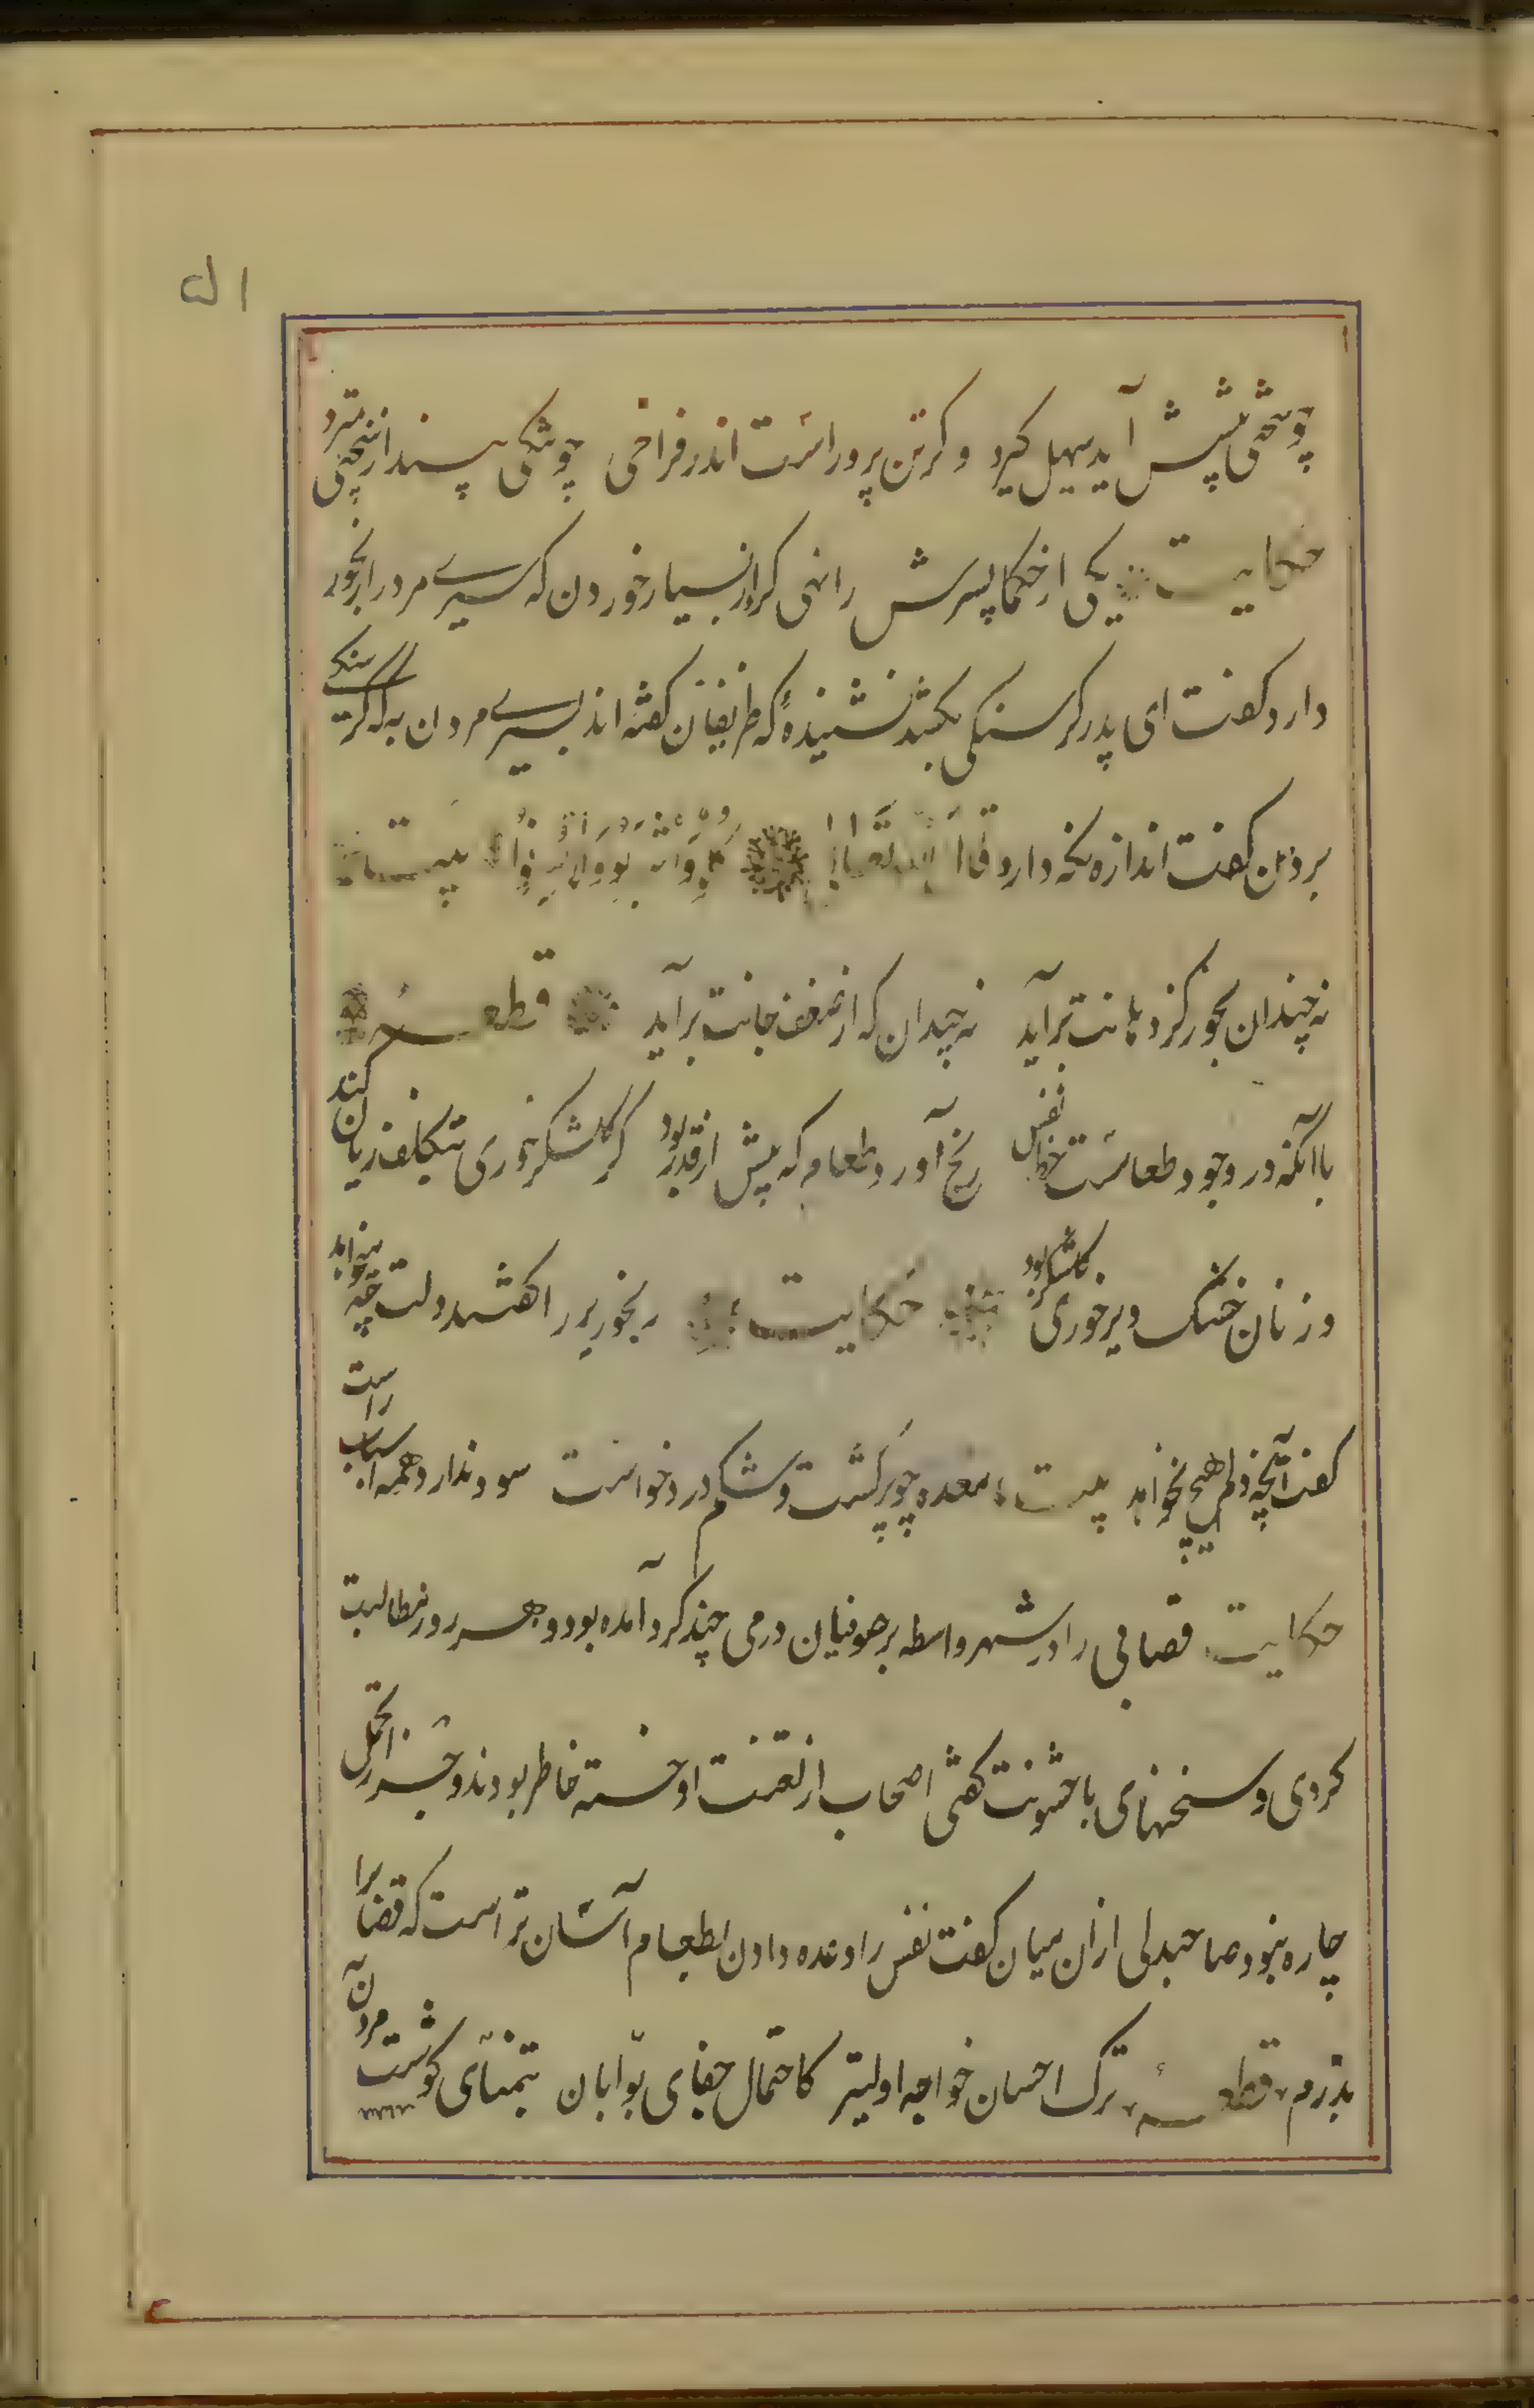 ۵۱
چو سختی پیشش آید سهل کیرد وکر تن پرور است اندر فراخی چو تنکی بیند از سختی بمیرد
حکایت یکی از حکما پسرش را نهی کرد از بسیار خوردن که سیری مردرا رنجور
دارد کفت ای پدر کرسنکی بکشد نشنیدهٔ که ظریفان کفته اند بسیری مردن به که کرسنکی
بردن کفت اندازه نکه دار و قال الله تعالی کلوا واشربوا ولا تسرفوا بیت
نه چندان بخور کز دهانت برآید نه چندان که از ضعف جانت برآید قطعه
با آنکه در وجود طعامست حظ نفس رنج آورد طعام که بیش از قدر بود کر کلشکر خوری بتکلف زیان کند
ور نان خشک دیر خوری کلشکر بود حکایت رنجوریرا کفتند دلت چه میخواهد
کفت آنچه دلم هیچ نخواهد بیت معده چو پر کشت و شکم درد خواست سود ندارد همه اسباب راست
حکایت قصابی را در شهر واسطه بر صوفیان درمی چند کرد آمده بود و هر روز مطالبت
کردی و سخنهای با خشونت کفتی اصحاب از تعنت او خسته خاطر بودند و جز تحمل
چاره نبود صاحبدلی ازان میان کفت نفس را وعده دادن بطعام آسان تر است که قصابرا
بدرم قطعه ترک احسان خواجه اولیتر کاحتمال جفای بوّابان بتمنّای کوشت مردن